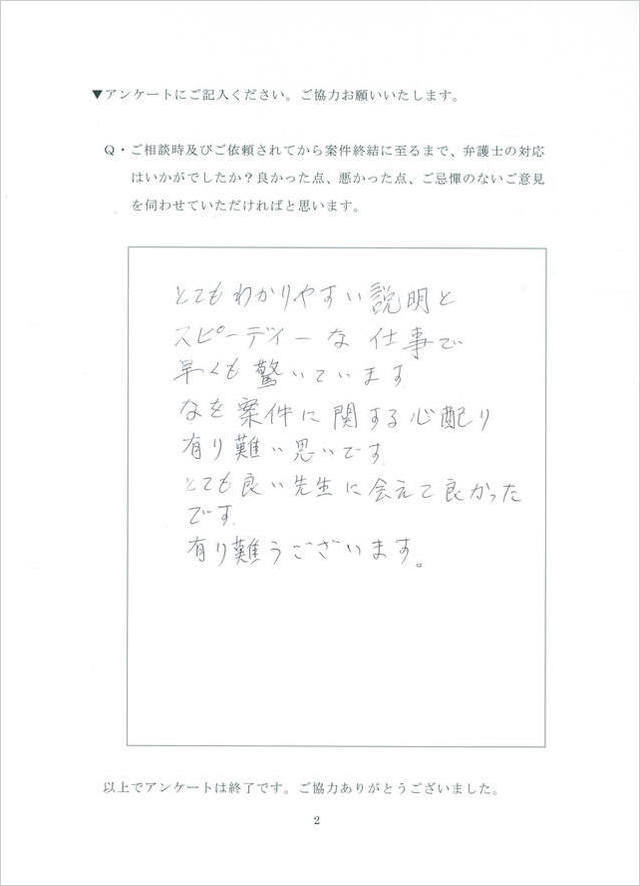 ▼アンケートにご記入ください。ご協力お願いいたします。
Q・ご相談時及びご依頼されてから案件終結に至るまで、弁護士の対応
はいかがでしたか？良かった点、悪かった点、ご忌憚のないご意見
を伺わせていただければと思います。
とてもわかりやすい説明と
スピーディーな仕事で
早くも驚いています
なを案件に関する心配り
有り難い思いです
とても良い先生に会えて良かった
です
有り難うございます。
以上でアンケートは終了です。ご協力ありがとうございました。
2